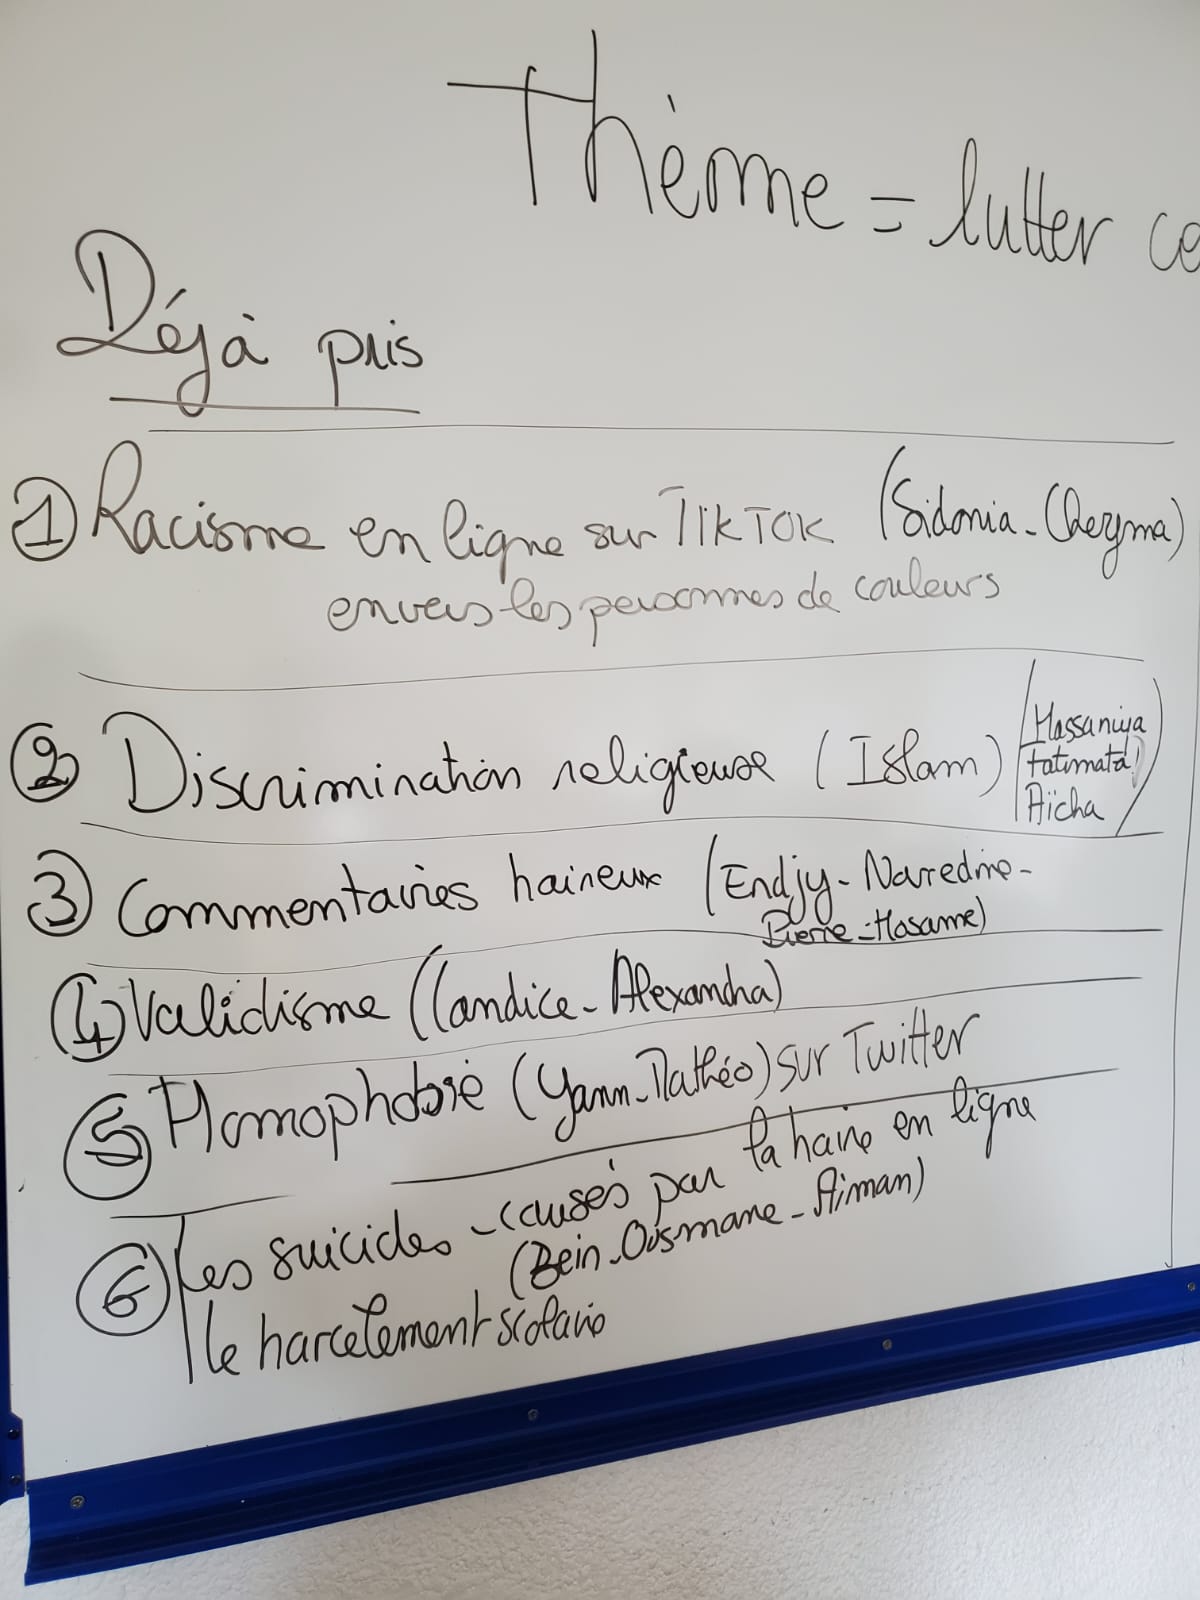 Thème = lutter co
Déjà pris
① Racisme en ligne sur TIKTOK (Sidonia - Cheyma)
envers les personnes de couleurs
② Discrimination religieuse (Islam) (Massaniya
Fatimata
Aïcha)
③ Commentaires haineux (Endjy - Naredine -
Pierre - Hosame)
④ Validisme (Candice - Alexandra)
⑤ Homophobie (Yann - Mathéo) sur Twitter
⑥ Les suicides - causés par la haine en ligne
(Bein - Ousmane - Aiman)
le harcelement scolaire